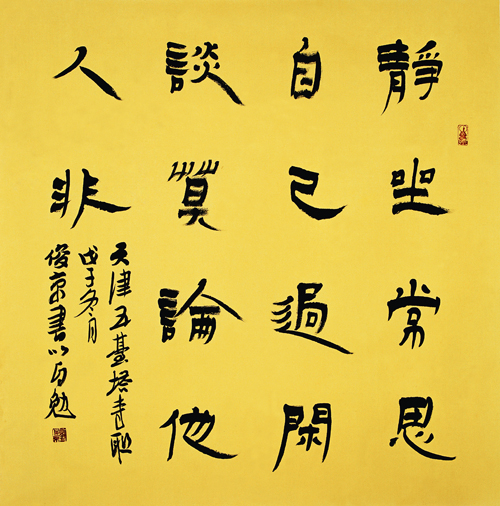 靜坐常思
自己過閑
談莫論他
人非
天津五臺塔寺聯
戊子冬月
俊京書以自勉